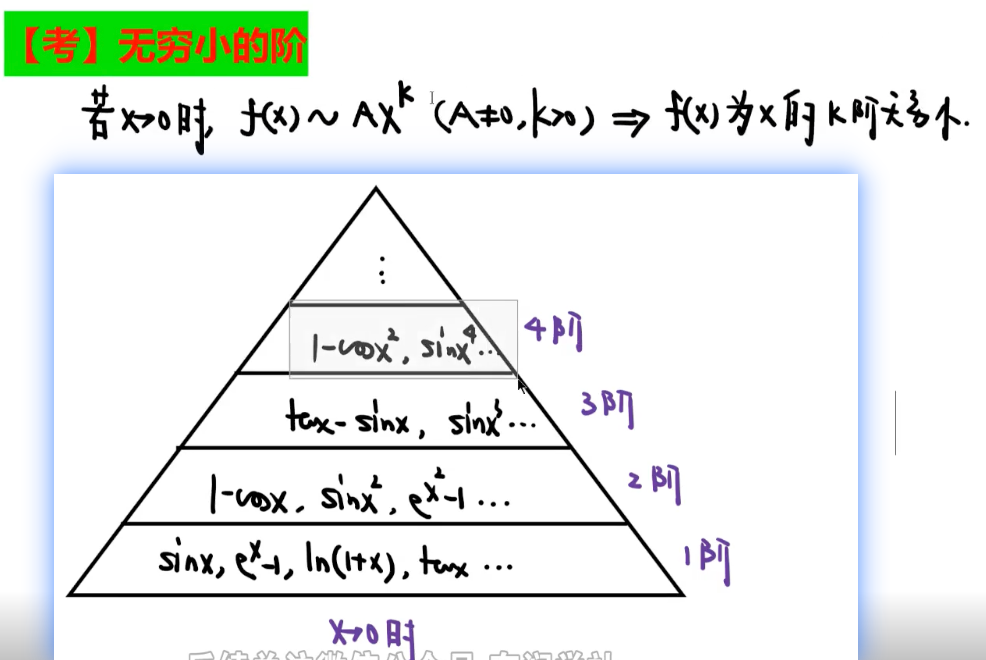 【考】无穷小的阶
若x→0时, f(x)~Ax^k (A≠0,k>0) ⇒ f(x)为x的k阶无穷小.
⋮
1-cosx², sinx⁴… 4阶
tanx-sinx, sinx³… 3阶
1-cosx, sinx², e^x²-1 … 2阶
sinx, e^x-1, ln(1+x), tanx … 1阶
x→0时